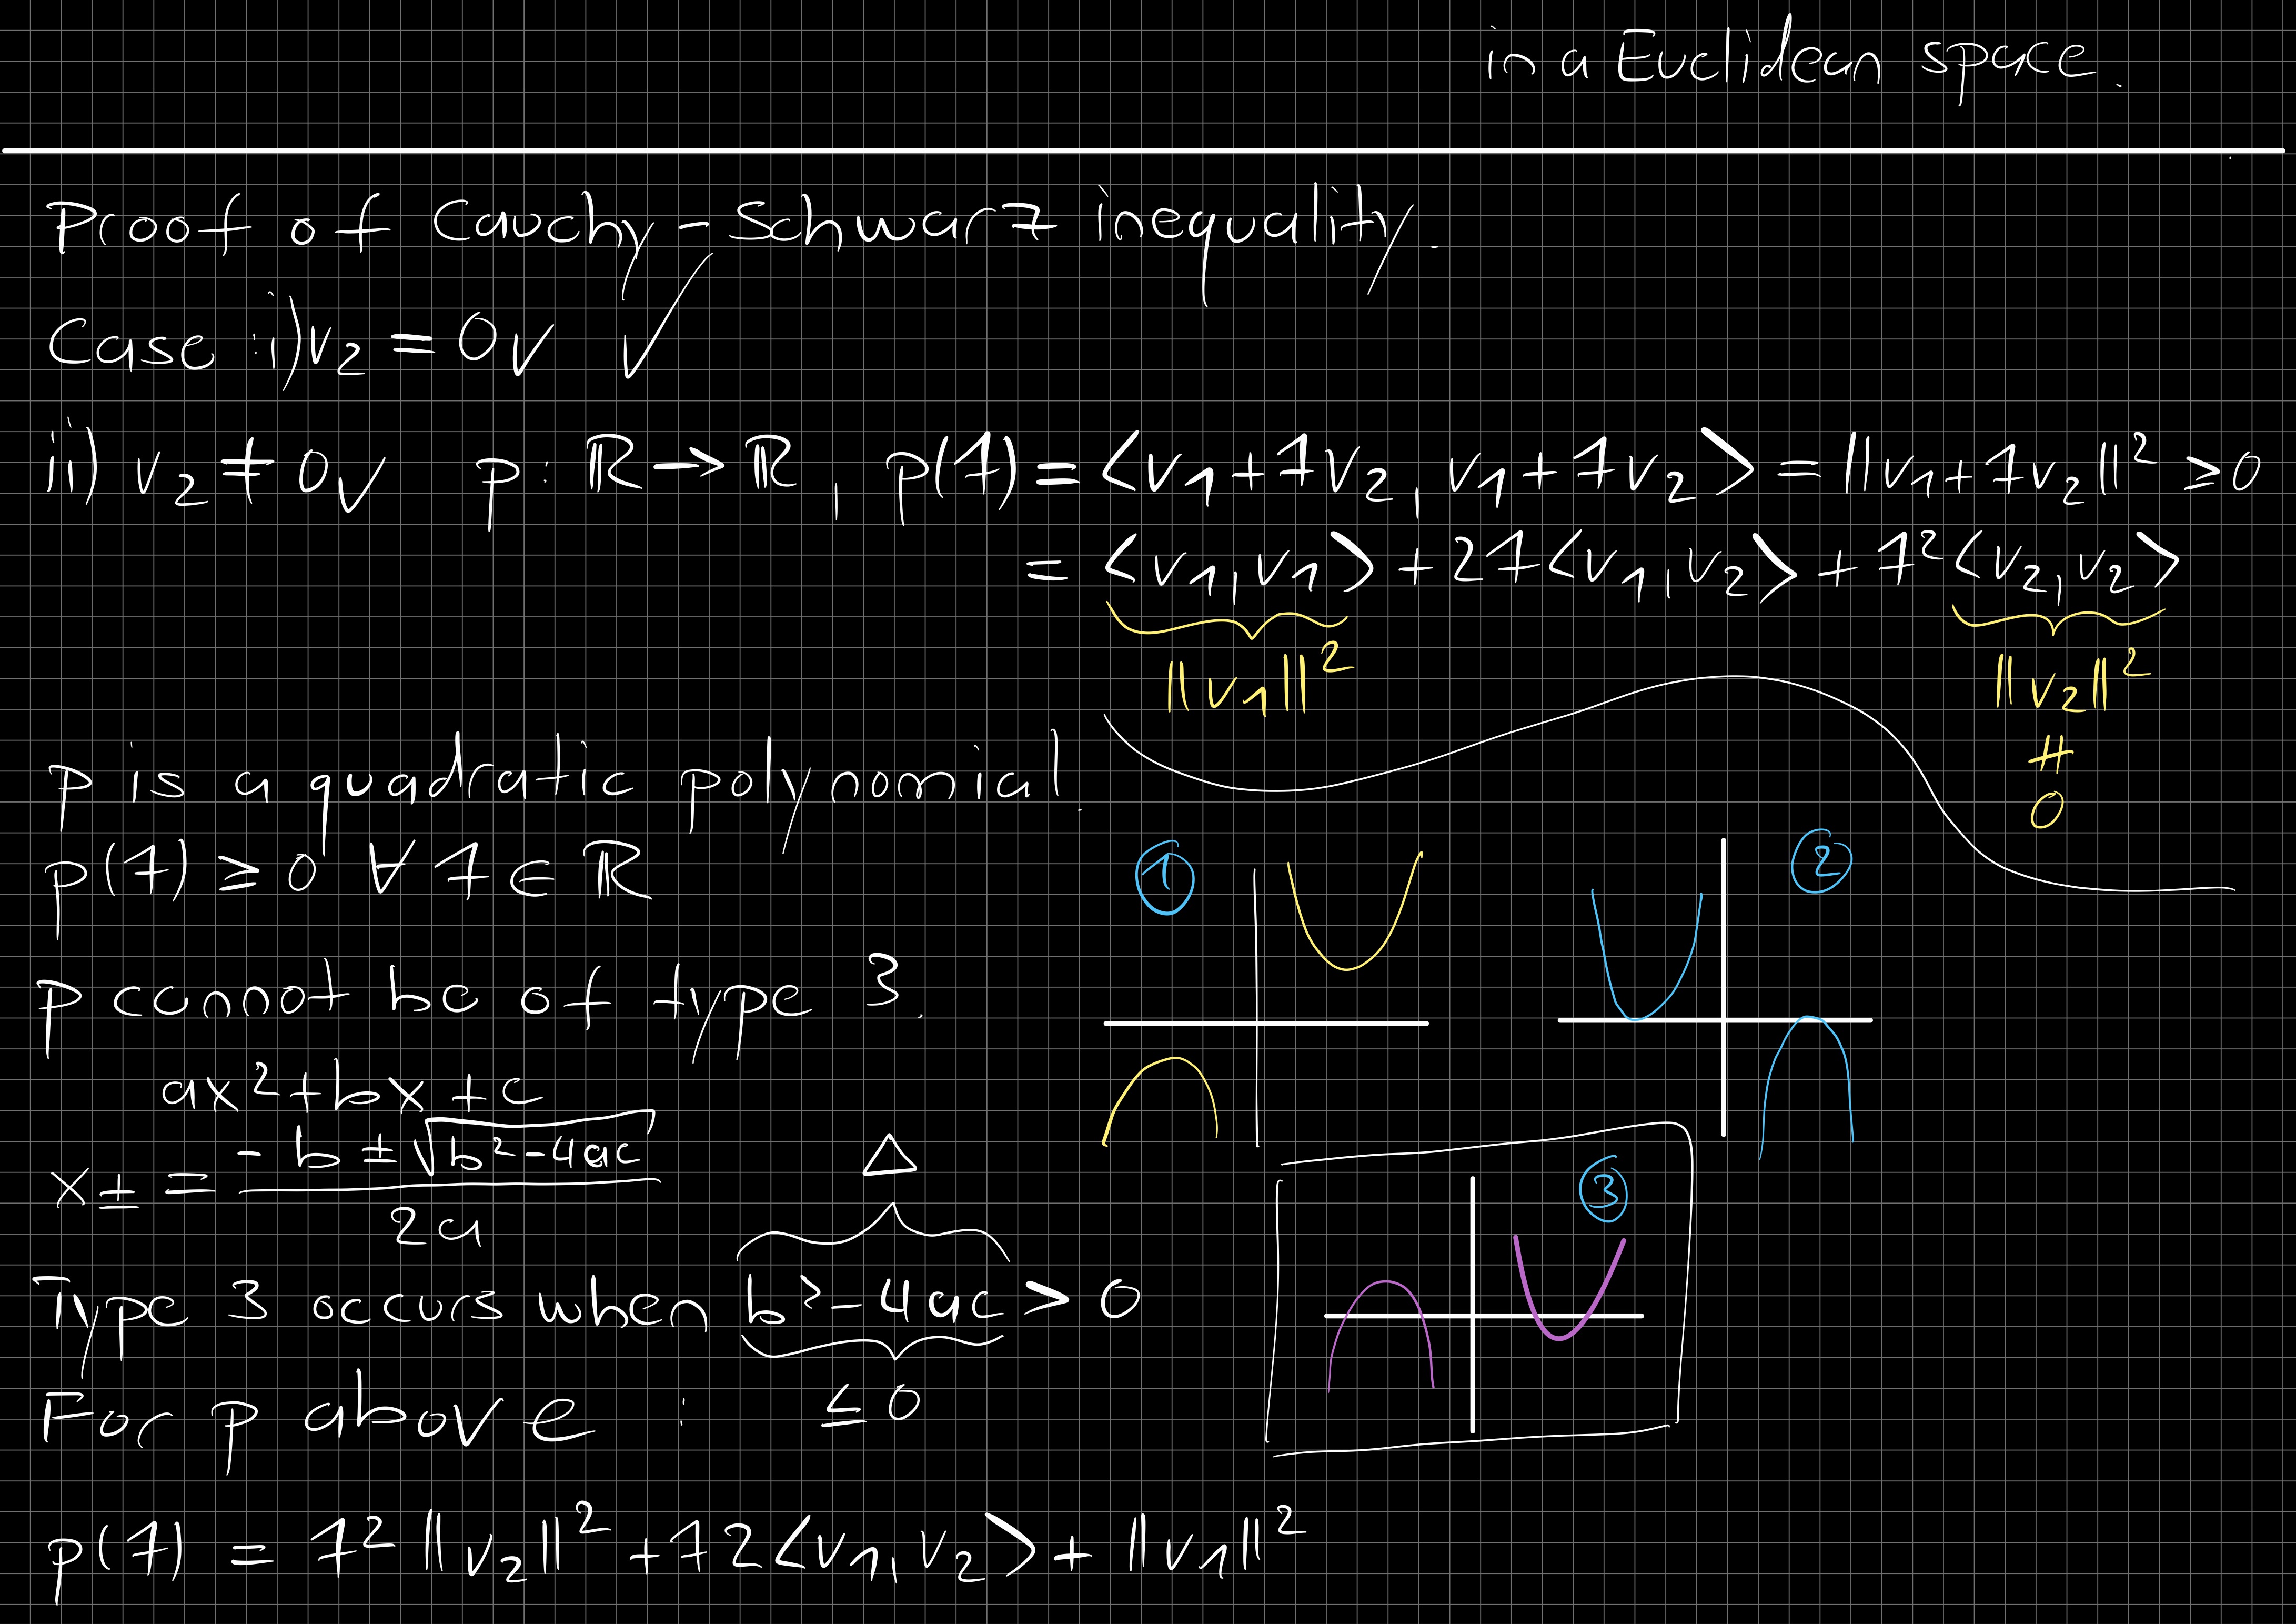 in a Euclidean space.
Proof of Cauchy-Schwarz inequality.
Case i) v₂ = 0ᵥ ✓
ii) v₂ ≠ 0ᵥ p: ℝ → ℝ, p(t) = <v₁ + tv₂, v₁ + tv₂> = ||v₁ + tv₂||² ≥ 0
= <v₁, v₁> + 2t<v₁, v₂> + t²<v₂, v₂>
||v₁||² ||v₂||²
≠
0
p is a quadratic polynomial.
p(t) ≥ 0 ∀ t ∈ ℝ
① ②
p cannot be of type 3.
ax² + bx + c
x± = (-b ± √(b² - 4ac)) / 2a
Δ
③
Type 3 occurs when b² - 4ac > 0
For p above: ≤ 0
p(t) = t² ||v₂||² + t2<v₁, v₂> + ||v₁||²